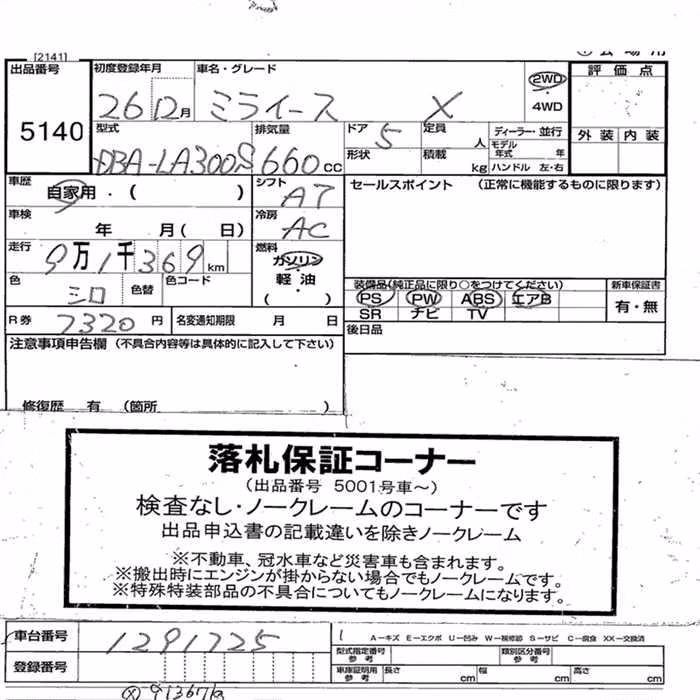 [2141]
出品番号 初度登録年月 車名・グレード 2WD 評価点
26 12月 ミライース X 4WD
5140 型式 排気量 ドア 定員 ディーラー・並行 外装 内装
5 人 モデル年式 年
DBA-LA300S 660cc 形状 積載 kg ハンドル 左・右
車歴 自家用・( ) シフト AT セールスポイント (正常に機能するものに限ります)
車検 年 月( 日) 冷房 AC
走行 9万1千369km 燃料 ガソリン
色 シロ 色替 色コード 軽油 装備品(純正品に限り○をつけてください) 新車保証書
( ) PS PW ABS エアB 有・無
R券 7320円 名変通知期限 月 日 SR ナビ TV
注意事項申告欄 (不具合内容等は具体的に記入して下さい) 後日品
修復歴 有 (箇所 )
落札保証コーナー
(出品番号 5001号車~)
検査なし・ノークレームのコーナーです
出品申込書の記載違いを除きノークレーム
※不動車、冠水車など災害車も含まれます。
※搬出時にエンジンが掛からない場合でもノークレームです。
※特殊特装部品の不具合についてもノークレームになります。
車台番号 1291725 A-キズ E-エクボ U-凹み W-補修跡 S-サビ C-腐食 XX-交換済
登録番号 型式指定番号 参考 類別区分番号 参考
車庫証明用 参考 長さ cm 幅 cm 高さ cm